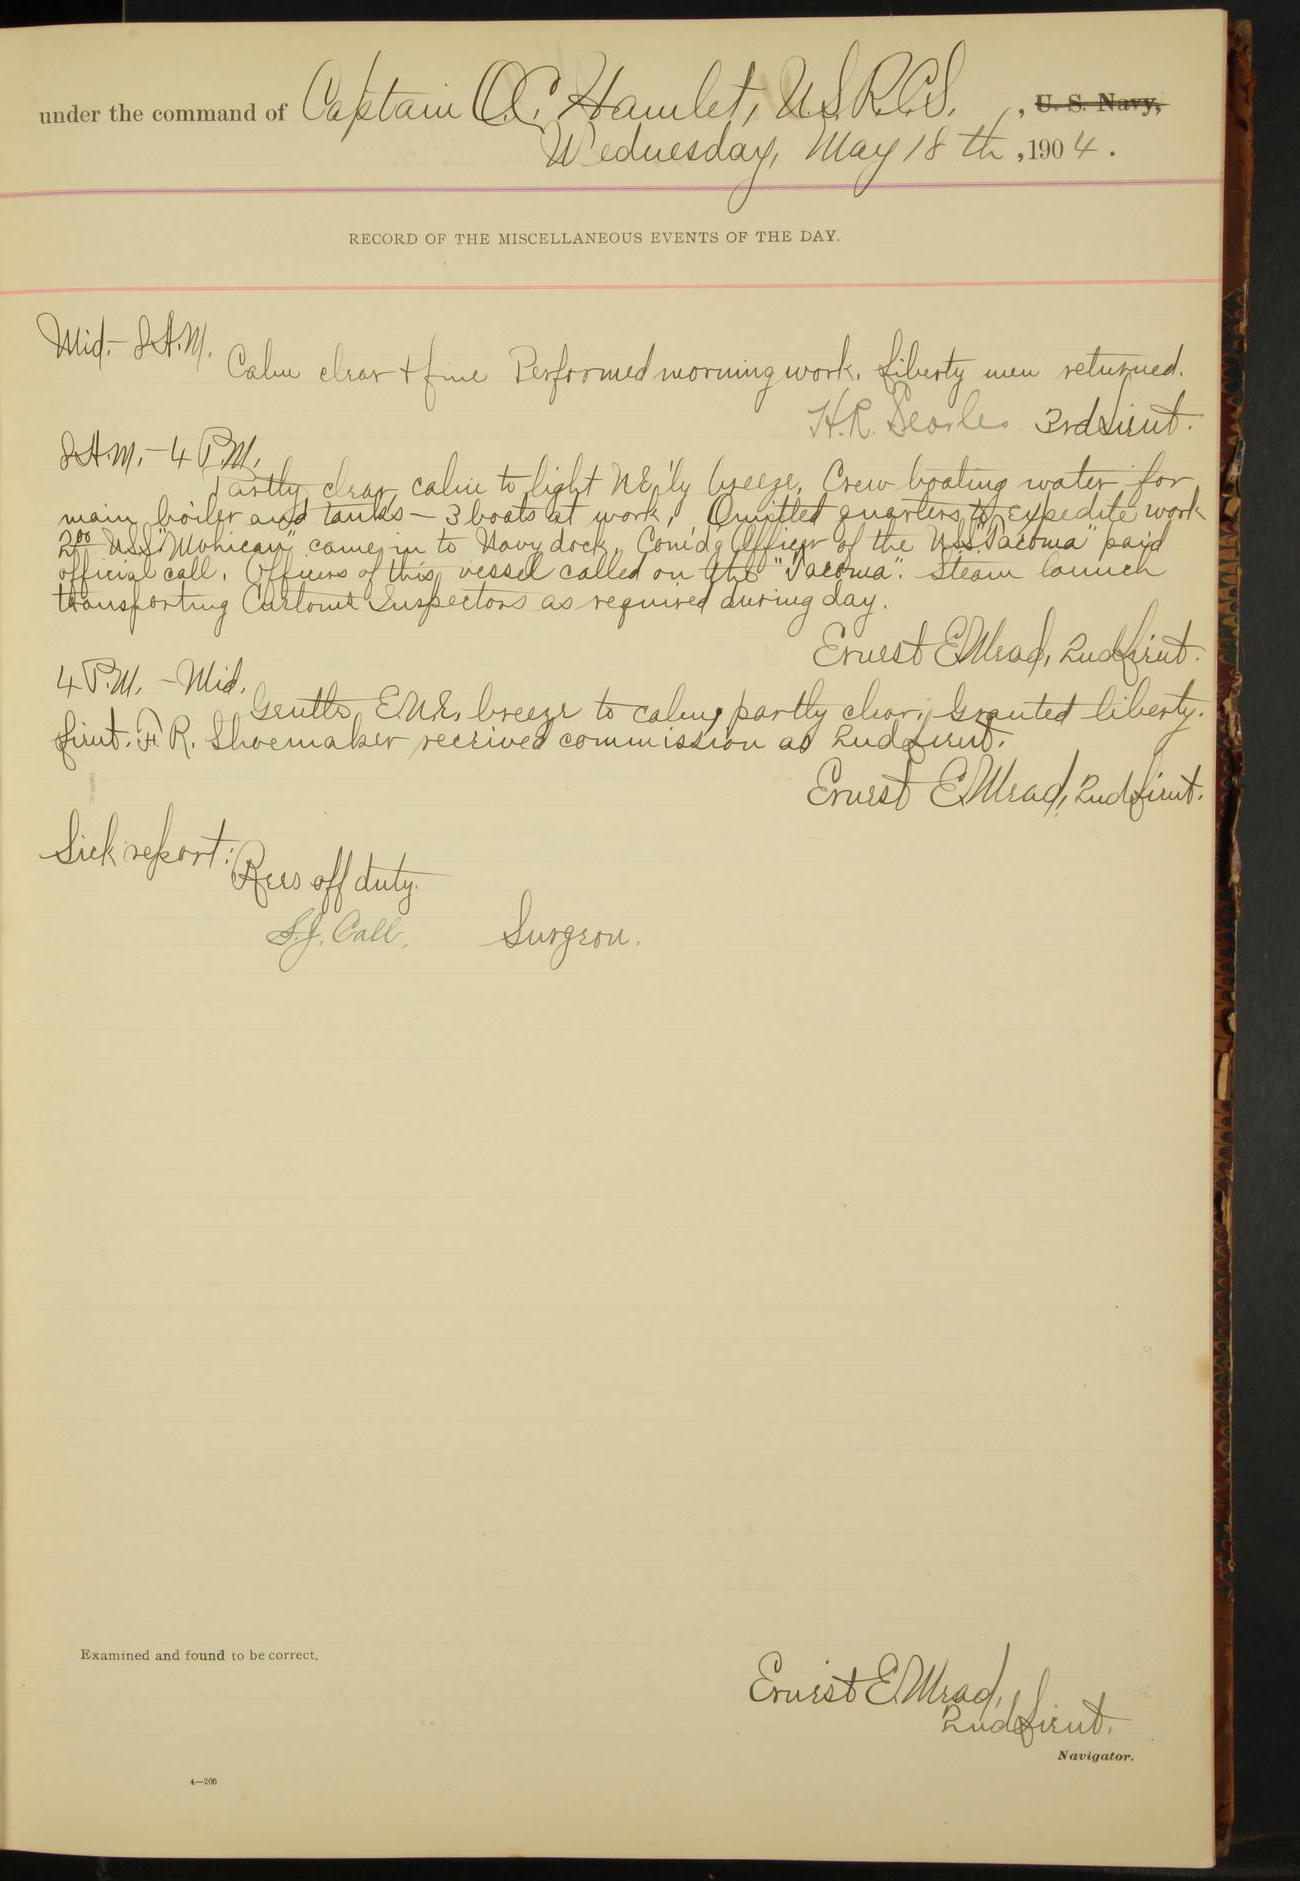 under the command of Captain O.C. Hamlet, U.S.R.C.S. , U. S. Navy,
Wednesday, May 18th , 1904.
RECORD OF THE MISCELLANEOUS EVENTS OF THE DAY.
Mid.- 8 A.M.
Calm clear + fine Performed morning work. Liberty men returned.
H.R. Searles 3rd Lieut.
8 A.M. - 4 P.M.
Partly clear, calm to light NE'ly breeze. Crew boating water for
main boiler and tanks - 3 boats at work. Omitted quarters to expedite work
2.00 U.S.S. "Mohican" came in to Navy dock. Com'dg Officer of the U.S.S. "Tacoma" paid
official call. Officers of this vessel called on the "Tacoma". Steam launch
transporting Customs Inspectors as required during day.
Ernest E. Mead, 2nd Lieut.
4 P.M. - Mid.
Gentle E.N.E. breeze to calm, partly clear. Granted liberty.
Lieut. F. R. Shoemaker received commission as 2nd Lieut.
Ernest E. Mead, 2nd Lieut.
Sick report:
Rees off duty.
S.J. Call. Surgeon.
Examined and found to be correct.
Ernest E. Mead,
2nd Lieut.
Navigator.
4—206